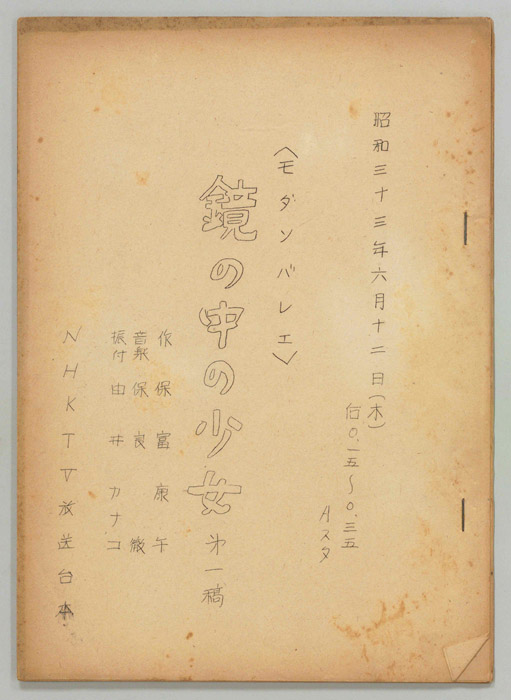 昭和三十三年六月十二日(木)
后0.一五〜0.三五
Aスタ
〈モダンバレエ〉
鏡の中の少女 第一稿
作 保富康午
音楽 保良 徹
振付 由井カナコ
NHKTV放送台本